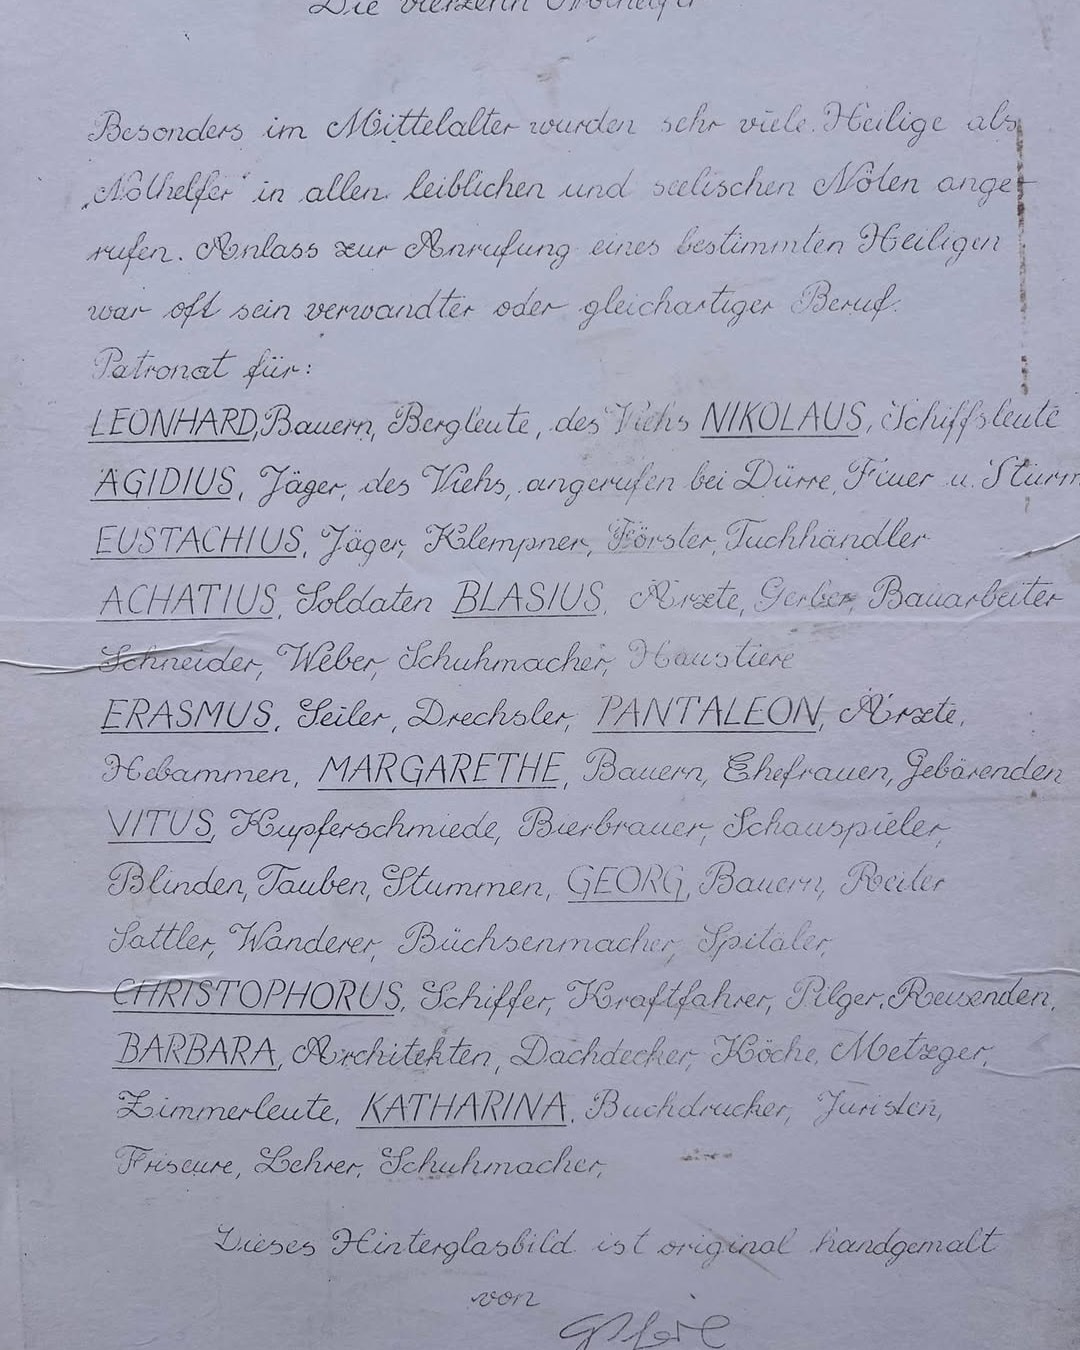 Die vierzehn Nothelfer
Besonders im Mittelalter wurden sehr viele Heilige als
„Nothelfer“ in allen leiblichen und seelischen Nöten ange-
rufen. Anlass zur Anrufung eines bestimmten Heiligen
war oft sein verwandter oder gleichartiger Beruf.
Patronat für:
LEONHARD, Bauern, Bergleute, des Viehs NIKOLAUS, Schiffsleute
ÄGIDIUS, Jäger, des Viehs, angerufen bei Dürre, Feuer u. Sturm
EUSTACHIUS, Jäger, Klempner, Förster, Tuchhändler
ACHATIUS, Soldaten BLASIUS, Ärzte, Gerber, Bauarbeiter
Schneider, Weber, Schuhmacher, Haustiere
ERASMUS, Seiler, Drechsler, PANTALEON, Ärzte,
Hebammen, MARGARETHE, Bauern, Ehefrauen, Gebärenden
VITUS, Kupferschmiede, Bierbrauer, Schauspieler,
Blinden, Tauben, Stummen, GEORG, Bauern, Reiter
Sattler, Wanderer, Büchsenmacher, Spitäler,
CHRISTOPHORUS, Schiffer, Kraftfahrer, Pilger, Reisenden,
BARBARA, Architekten, Dachdecker, Köche, Metzger,
Zimmerleute, KATHARINA, Buchdrucker, Juristen,
Friseure, Lehrer, Schuhmacher,
Dieses Hinterglasbild ist original handgemalt
von